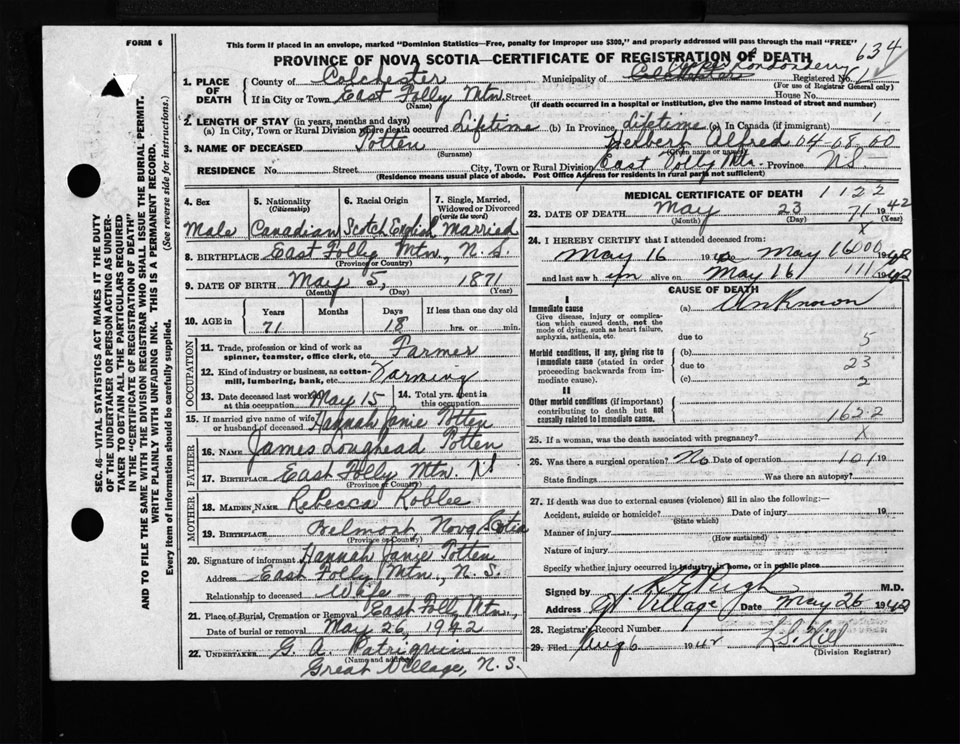 FORM 6
This form if placed in an envelope, marked "Dominion Statistics—Free, penalty for improper use $300," and properly addressed will pass through the mail "FREE"
PROVINCE OF NOVA SCOTIA—CERTIFICATE OF REGISTRATION OF DEATH
634
1. PLACE OF DEATH
County of Colchester
Municipality of Londonderry
Registered No.
(For use of Registrar General only)
If in City or Town East Folly Mtn. Street House No.
(Name) (If death occurred in a hospital or institution, give the name instead of street and number)
2. LENGTH OF STAY (in years, months and days)
(a) In City, Town or Rural Division where death occurred Lifetime (b) In Province Lifetime (c) In Canada (if immigrant)
3. NAME OF DECEASED Totten Alfred 04-08-00
(Surname)
RESIDENCE No. Street City, Town or Rural Division East Folly Mtn. Province N.S.
(Residence means usual place of abode. Post Office Address for residents in rural parts not sufficient)
4. Sex
Male
5. Nationality (Citizenship)
Canadian
6. Racial Origin
Scotch English
7. Single, Married, Widowed or Divorced (write the word)
Married
8. BIRTHPLACE East Folly Mtn, N.S.
(Province or Country)
9. DATE OF BIRTH May 5, 1871
(Month) (Day) (Year)
10. AGE in Years Months Days If less than one day old
71 18 hrs. or min.
OCCUPATION
11. Trade, profession or kind of work as spinner, teamster, office clerk, etc. Farmer
12. Kind of industry or business, as cotton-mill, lumbering, bank, etc. Farming
13. Date deceased last worked at this occupation May 15 14. Total yrs. spent in this occupation
15. If married give name of wife or husband of deceased Hannah Janie Totten
FATHER
16. NAME James Loughead Totten
17. BIRTHPLACE East Folly Mtn. N.S
(Province or Country)
MOTHER
18. MAIDEN NAME Rebecca Roblee
19. BIRTHPLACE Belmont, Nova Scotia
(Province or Country)
20. Signature of informant Hannah Janie Totten
Address East Folly Mtn., N.S.
Relationship to deceased Wife
21. Place of Burial, Cremation or Removal East Folly Mtn,
Date of burial or removal May 26, 1942
22. UNDERTAKER G. A. Patriquin
(Name and address)
Great Village, N.S.
MEDICAL CERTIFICATE OF DEATH 1122
23. DATE OF DEATH May 23 71 1942
(Month) (Day) (Year)
24. I HEREBY CERTIFY that I attended deceased from:
May 16 to May 16 1942
and last saw him alive on May 16 1942
CAUSE OF DEATH
I
Immediate cause (a) Unknown
Give disease, injury or complication which caused death, not the mode of dying, such as heart failure, asphyxia, asthenia, etc.
due to 5
Morbid conditions, if any, giving rise to immediate cause (stated in order proceeding backwards from immediate cause).
(b)
due to 23
(c) 2
II
Other morbid conditions (if important) contributing to death but not causally related to immediate cause.
1622
25. If a woman, was the death associated with pregnancy? X
26. Was there a surgical operation? No Date of operation 101 19
State findings Was there an autopsy?
27. If death was due to external causes (violence) fill in also the following:—
Accident, suicide or homicide? Date of injury 19
(State which)
Manner of injury
(How sustained)
Nature of injury
Specify whether injury occurred in industry, in home, or in public place
Signed by M.D.
Address Gt Village Date May 26 1942
28. Registrar's Record Number
29. Filed Aug 6 1942
(Division Registrar)
SEC. 46—VITAL STATISTICS ACT MAKES IT THE DUTY
OF THE UNDERTAKER OR PERSON ACTING AS UNDER-
TAKER TO OBTAIN ALL THE PARTICULARS REQUIRED
IN THE "CERTIFICATE OF REGISTRATION OF DEATH"
AND TO FILE THE SAME WITH THE DIVISION REGISTRAR WHO SHALL ISSUE THE BURIAL PERMIT.
WRITE PLAINLY WITH UNFADING INK. THIS IS A PERMANENT RECORD.
Every item of information should be carefully supplied. (See reverse side for instructions.)